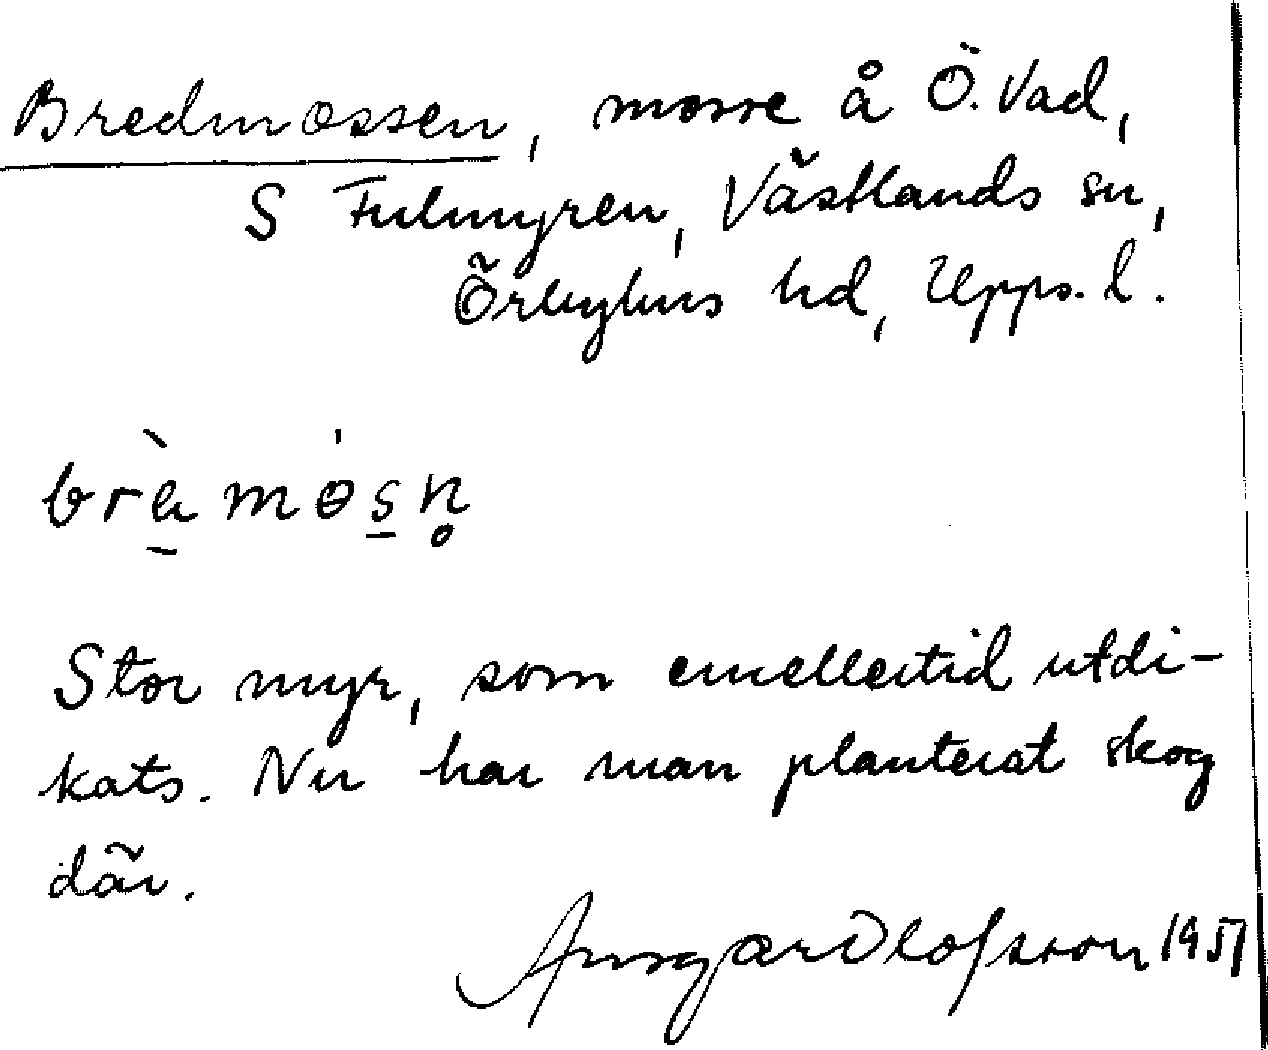 Bredmossen, mosse å Ö. Vad,
S Fulmyren, Västlands sn,
Örbyhus hd, Upps. l.
Stor myr, som emellertid utdi-
kats. Nu har man planterat skog
där.
Ansgar Olofsson 1951